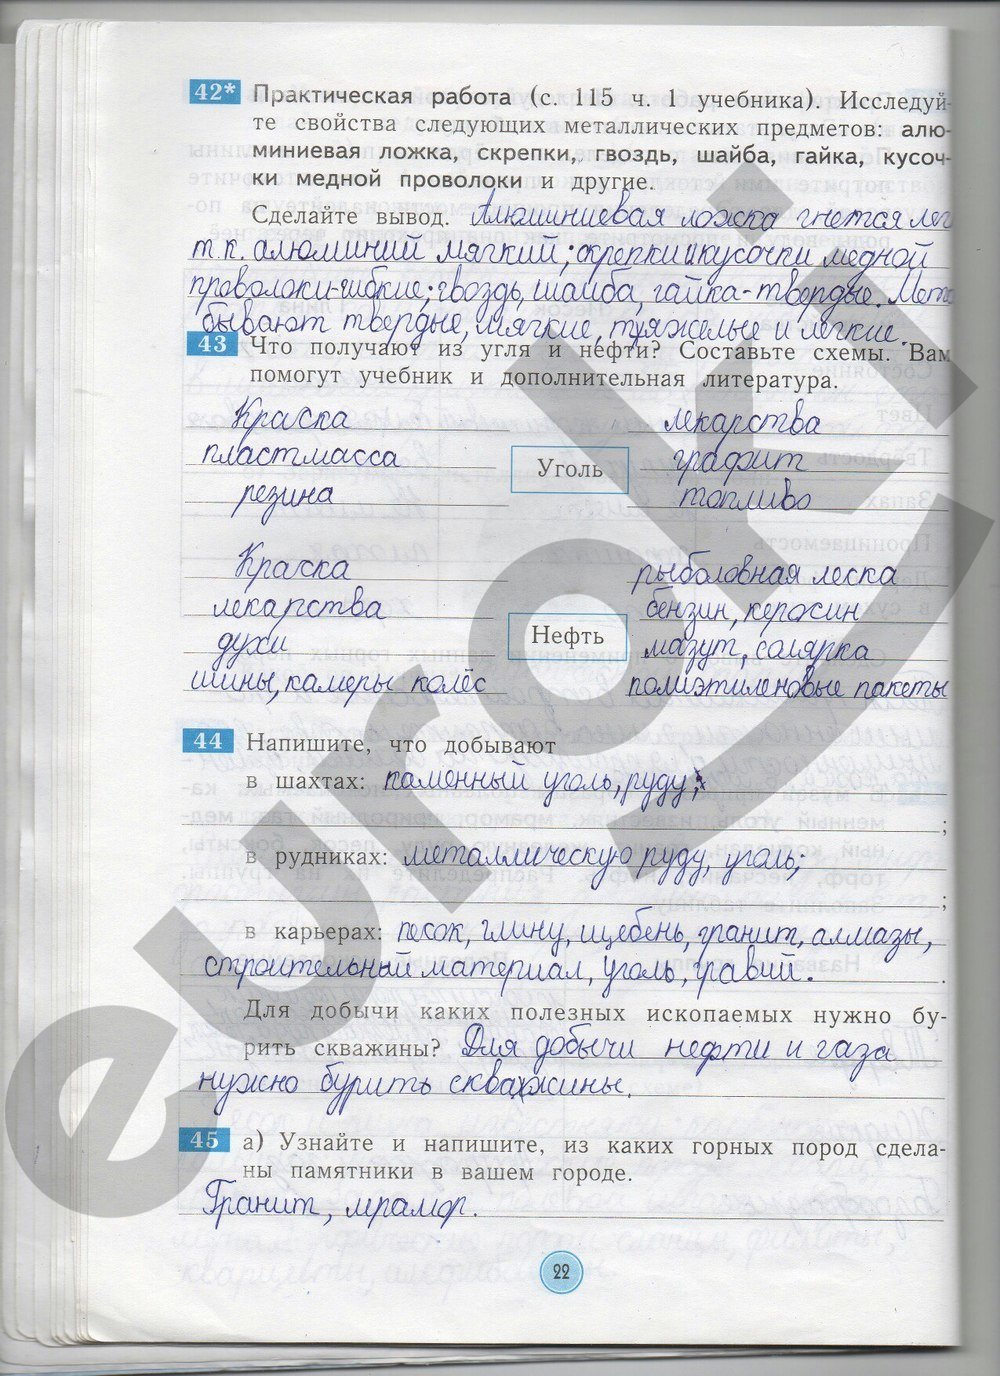 42* Практическая работа (с. 115 ч. 1 учебника). Исследуй-
те свойства следующих металлических предметов: алю-
миниевая ложка, скрепки, гвоздь, шайба, гайка, кусоч-
ки медной проволоки и другие.
Сделайте вывод. Алюминиевая ложка гнется лег
т.к. алюминий мягкий; скрепки и кусочки медной
проволоки-гибкие; гвоздь, шайба, гайка-твердые. Мета
бывают твердые, мягкие, тяжелые и легкие.
43 Что получают из угля и нефти? Составьте схемы. Вам
помогут учебник и дополнительная литература.
Краска лекарства
пластмасса Уголь графит
резина топливо
Краска рыболовная леска
лекарства бензин, керосин
духи Нефть мазут, солярка
шины, камеры колёс полиэтиленовые пакеты
44 Напишите, что добывают
в шахтах: каменный уголь, руду;
;
в рудниках: металлическую руду, уголь;
;
в карьерах: песок, глину, щебень, гранит, алмазы,
строительный материал, уголь, гравий.
Для добычи каких полезных ископаемых нужно бу-
рить скважины? Для добычи нефти и газа
нужно бурить скважины.
45 а) Узнайте и напишите, из каких горных пород сдела-
ны памятники в вашем городе.
Гранит, мрамор.
22
euroki